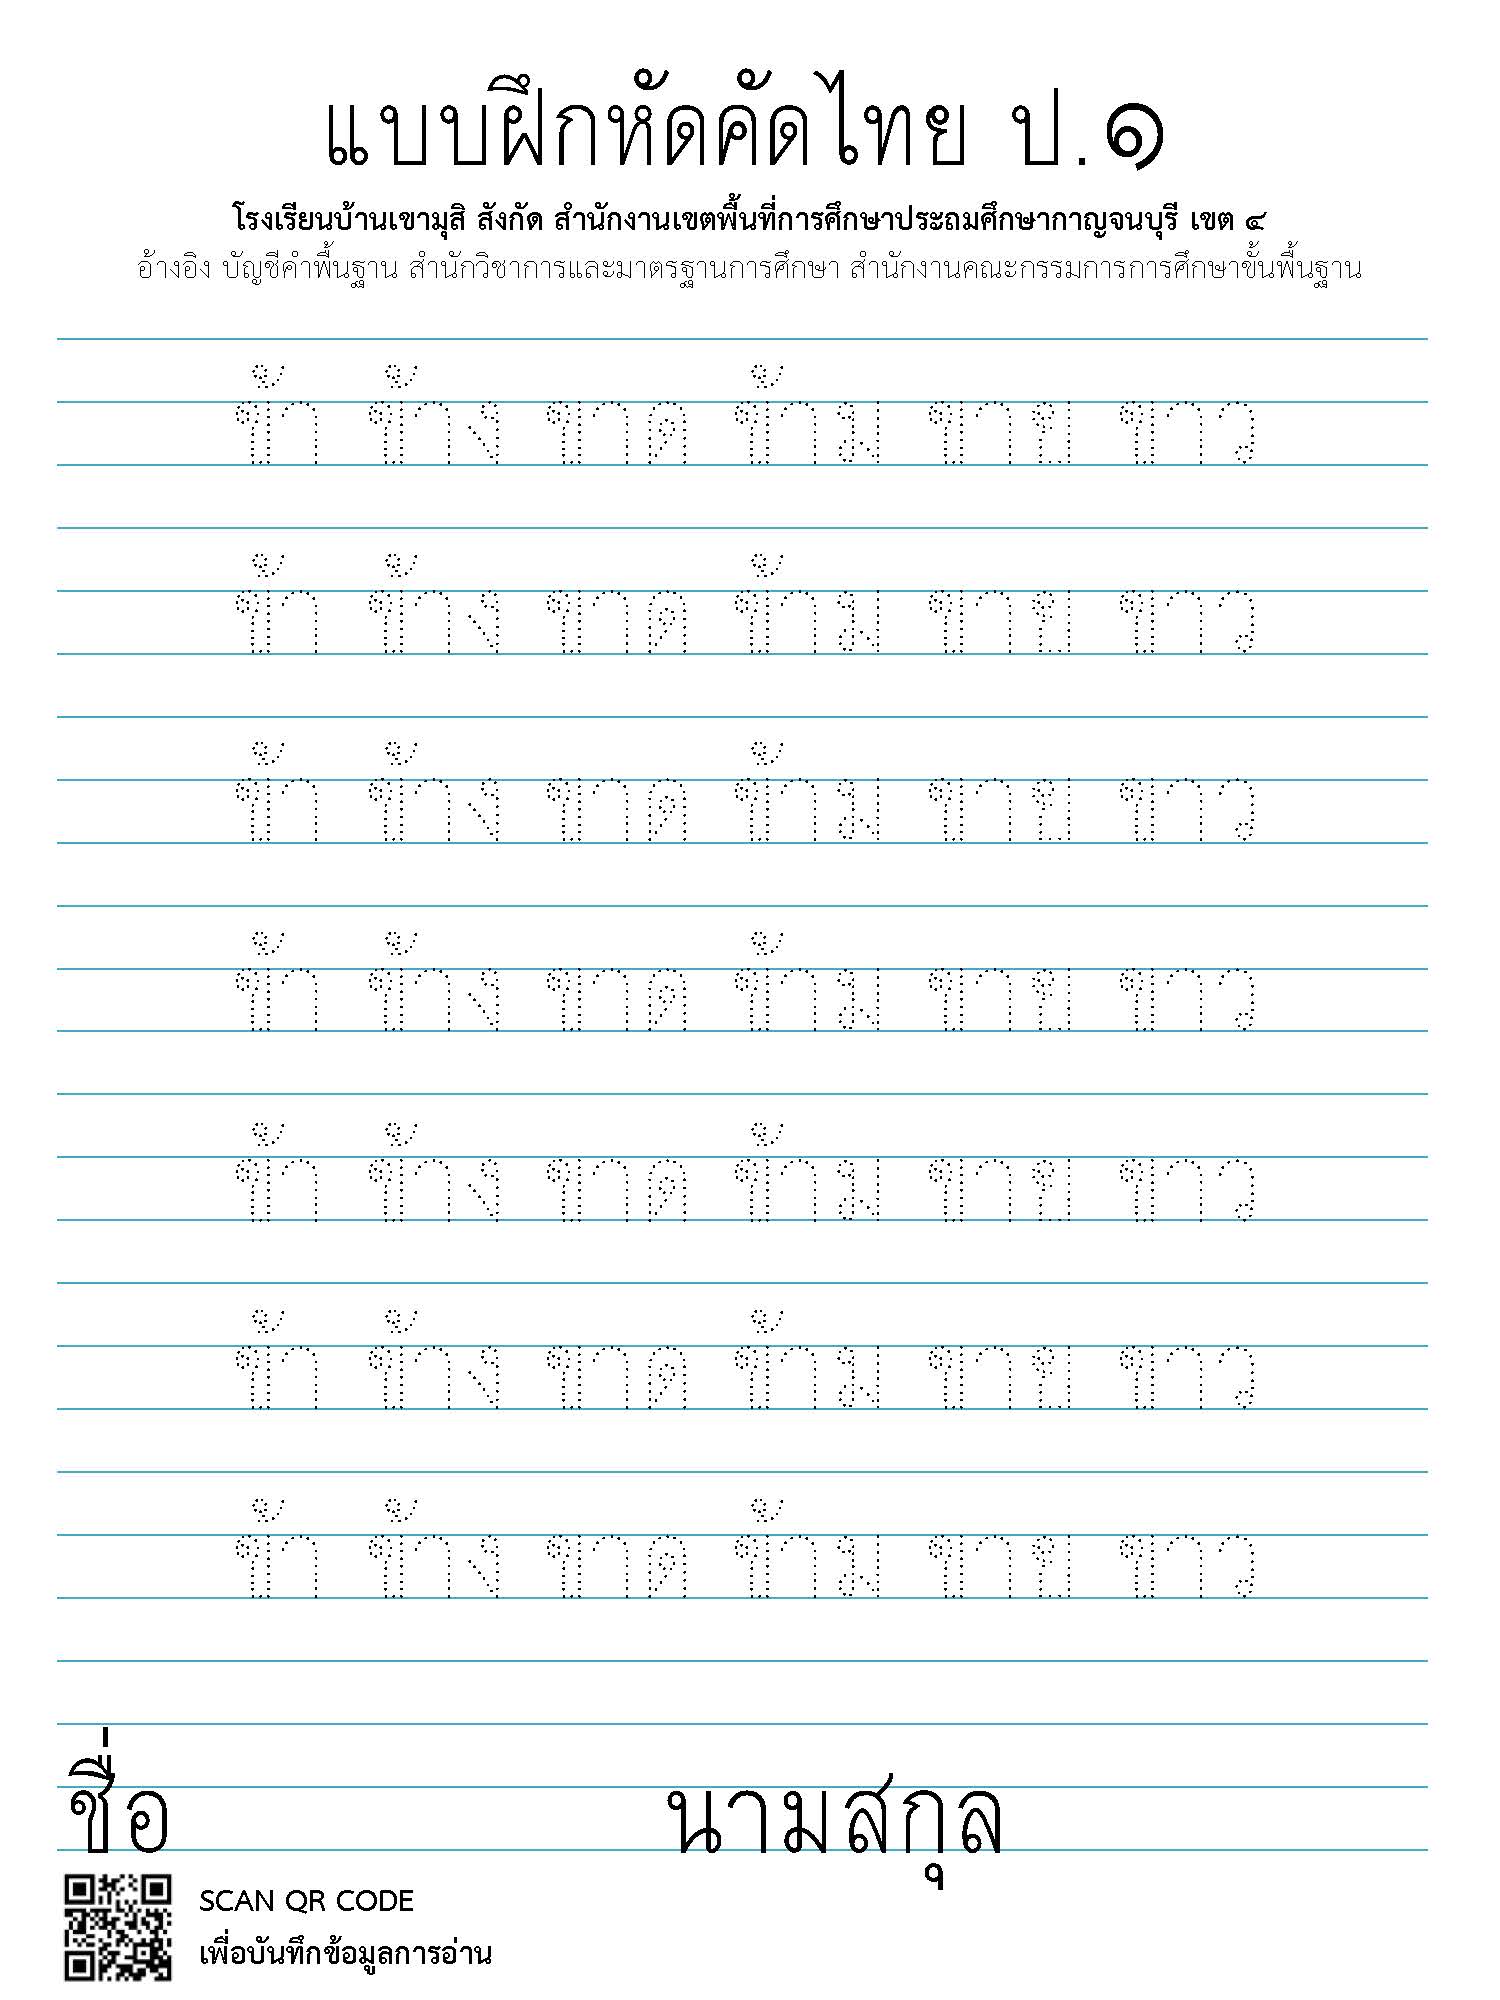 แบบฝึกหัดคัดไทย ป.๑
โรงเรียนบ้านเขามุสิ สังกัด สำนักงานเขตพื้นที่การศึกษาประถมศึกษากาญจนบุรี เขต ๔
อ้างอิง บัญชีคำพื้นฐาน สำนักวิชาการและมาตรฐานการศึกษา สำนักงานคณะกรรมการการศึกษาขั้นพื้นฐาน
ข้า ข้าง ขาด ข้าม ขาย ขาว
ข้า ข้าง ขาด ข้าม ขาย ขาว
ข้า ข้าง ขาด ข้าม ขาย ขาว
ข้า ข้าง ขาด ข้าม ขาย ขาว
ข้า ข้าง ขาด ข้าม ขาย ขาว
ข้า ข้าง ขาด ข้าม ขาย ขาว
ข้า ข้าง ขาด ข้าม ขาย ขาว
ชื่อ นามสกุล
SCAN QR CODE
เพื่อบันทึกข้อมูลการอ่าน